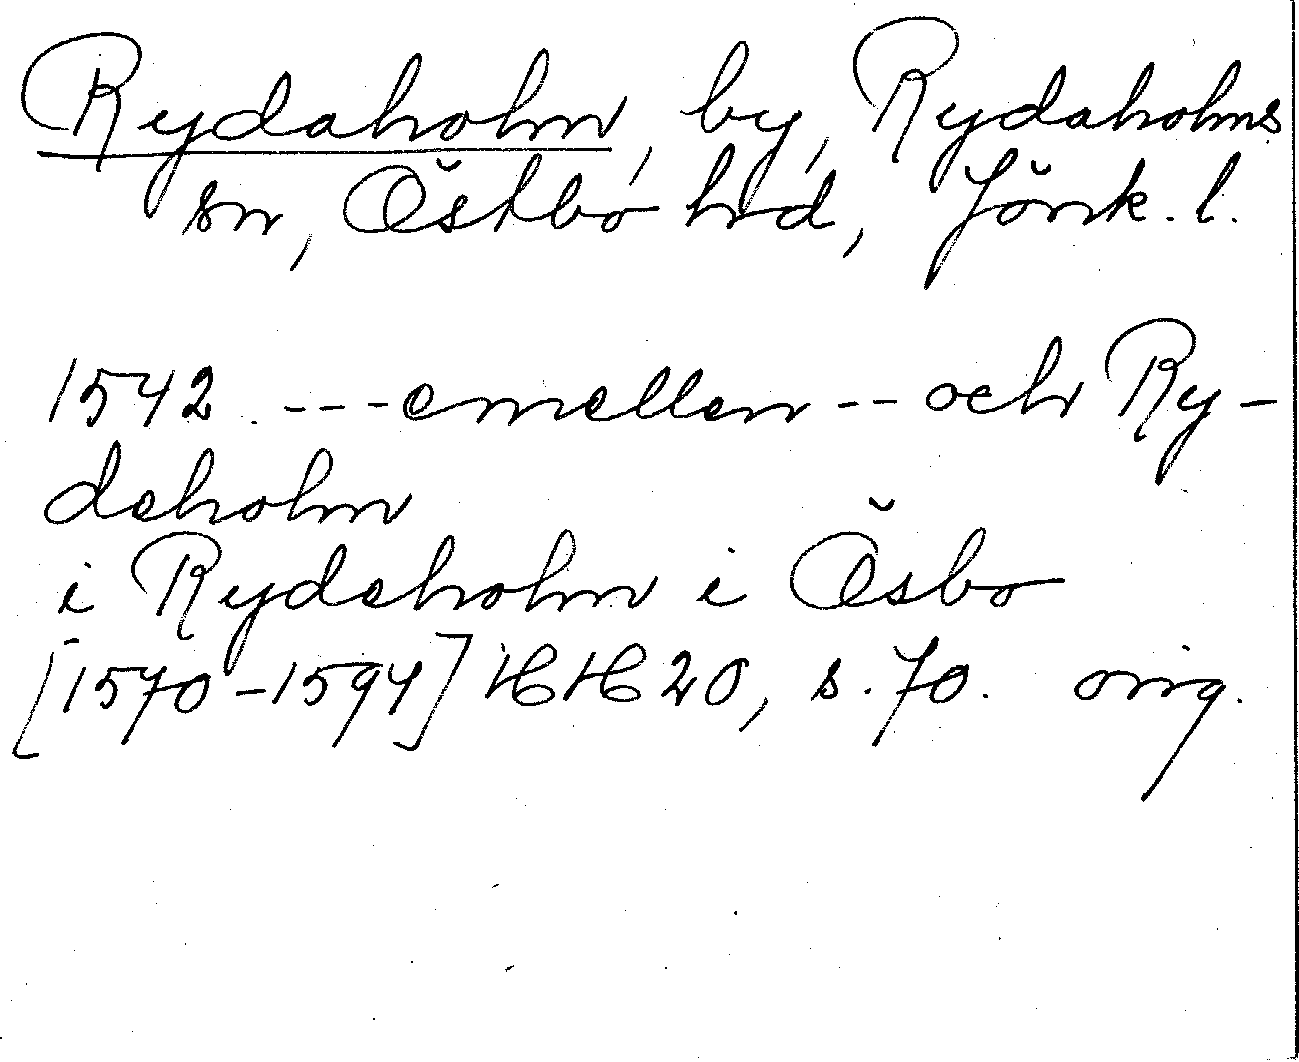 Rydaholm, by, Rydaholms
sn, Östbo hd, Jönk. l.
1542 . --- emellen -- och Ry-
deholm
i Rydeholm i Ösbo
[1570-1594] HH 20, s. 70. orig.